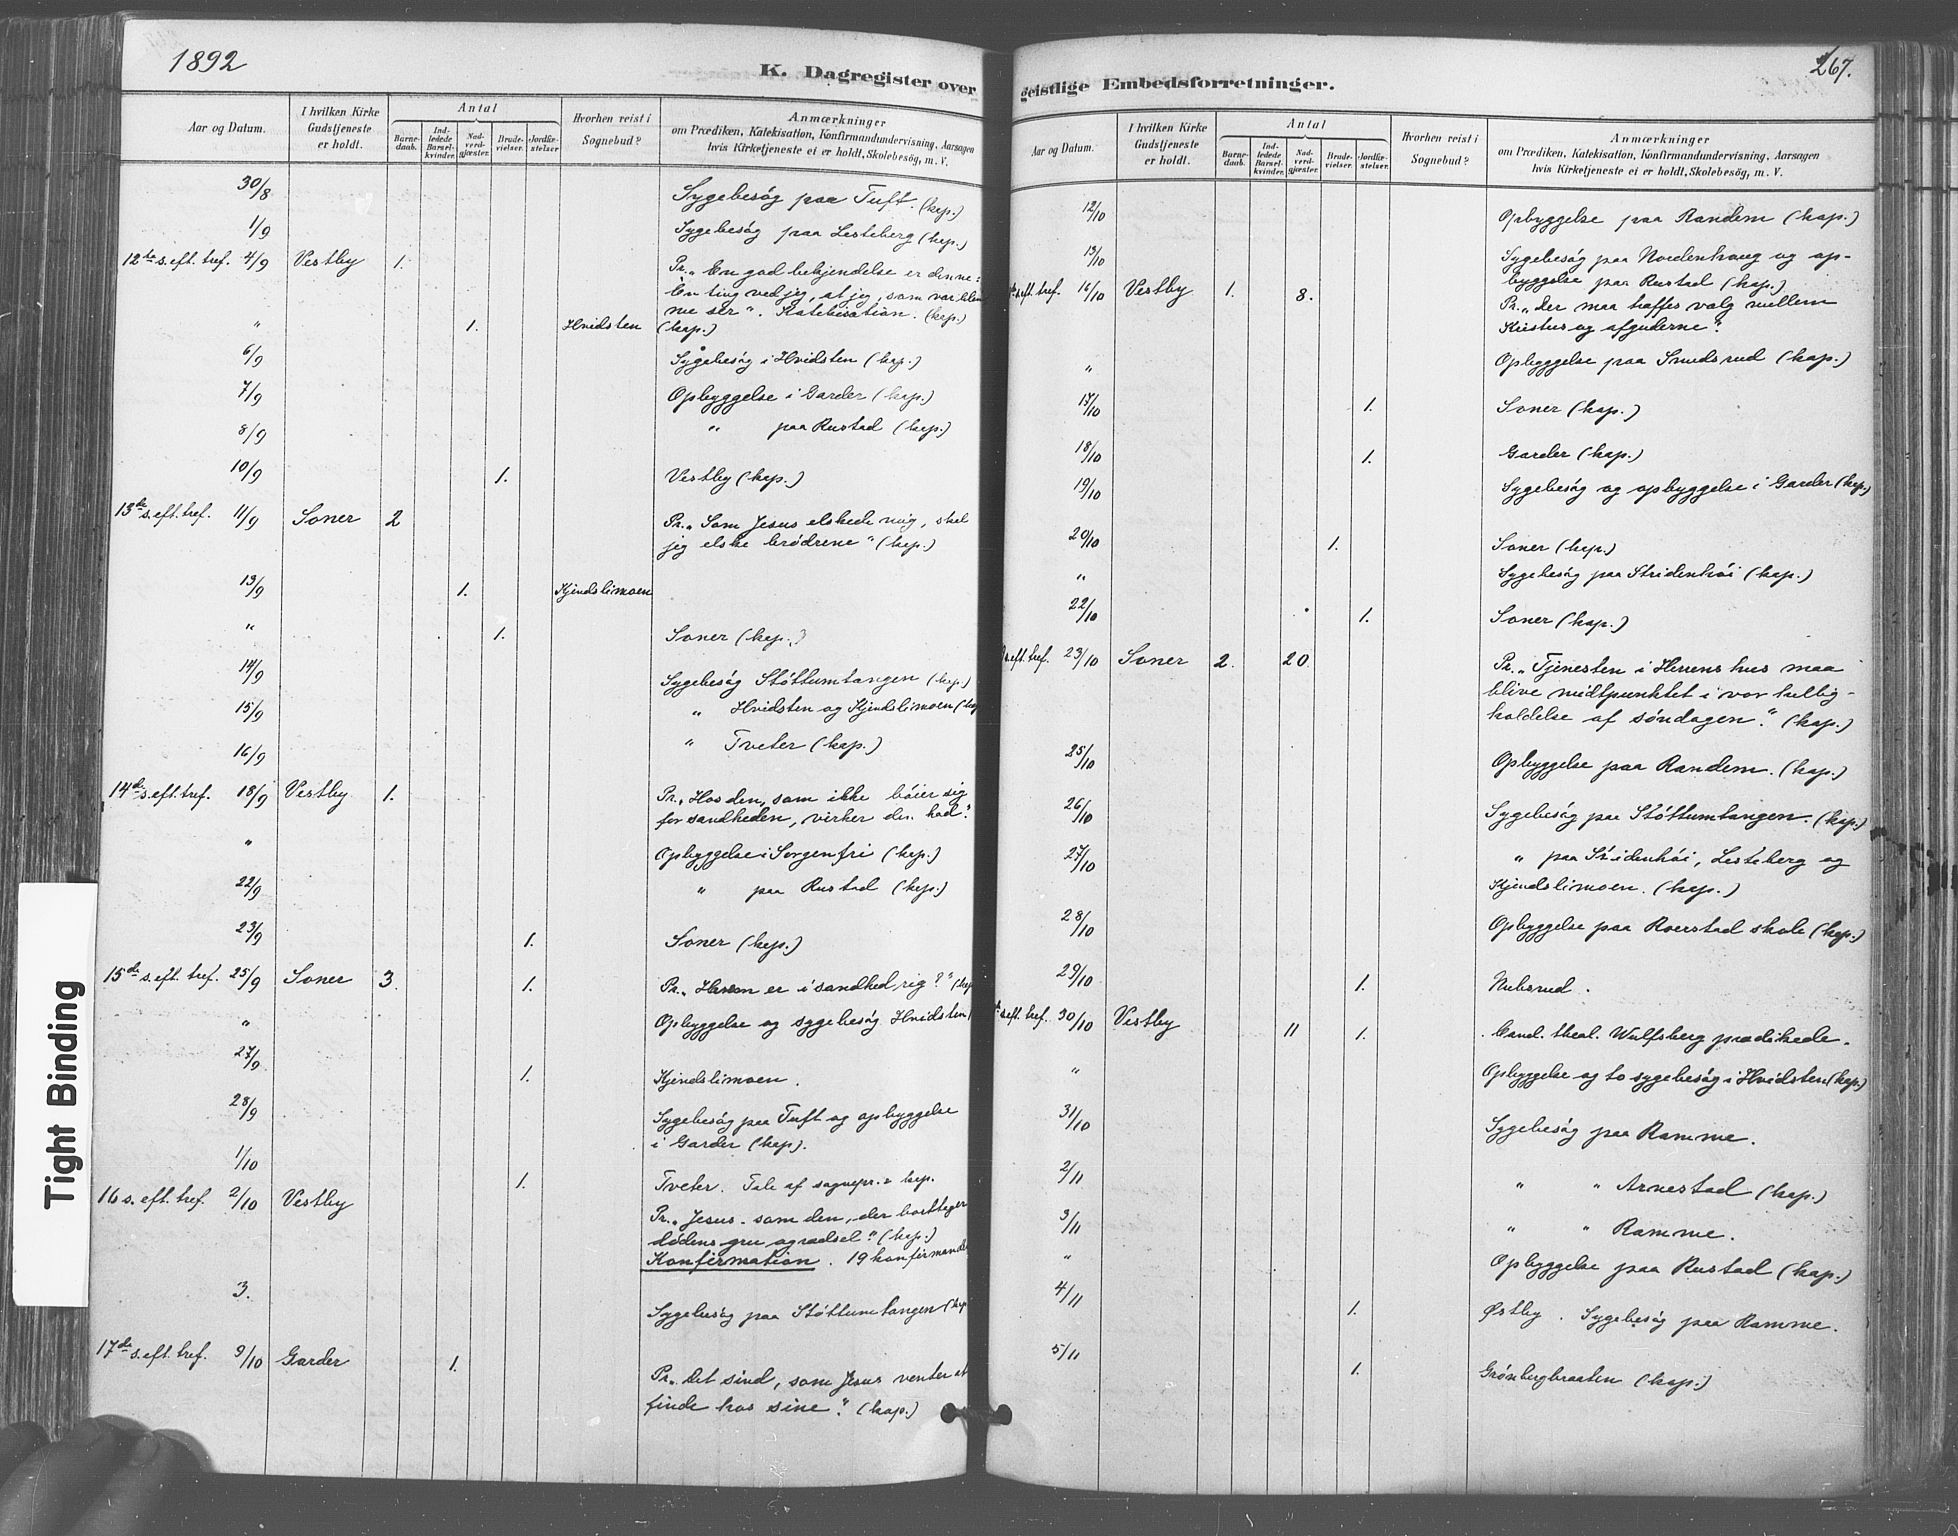 1892
K. Dagregister over
Aar og Datum.
I hvilken Kirke Gudstjeneste er holdt.
Antal
Barnedaab.
Indledede Barselkvinder.
Nadverdgjæster.
Brudevielser.
Jordfæstelser
Hvorhen reist i Sognebud?
Anmærkninger
om Prædiken, Katekisation, Konfirmandundervisning, Aarsagen
hvis Kirketjeneste ei er holdt, Skolebesög, m. V.
30/8 Sygebesög paa Tuft. (kap.)
1/9 Sygebesög paa Lesteberg (kap.)
12te s. eft. tref. 4/9 Vestby 1. Pr. „En god bekjendelse er denne:
En ting ved jeg, at jeg, som var blind
nu ser“. Katekisation. (kap.)
" 1. Hvidsten (kap.)
6/9 Sygebesög i Hvidsten (kap.)
7/9 Opbyggelse i Garder (kap.)
8/9 " paa Rustad (kap.)
10/9 1. Vestby (kap.)
13de s. eft. tref. 11/9 Soner 2 Pr. „Som Jesus elskede mig, skal
jeg elske brødrene“ (kap.)
13/9 1. Kjendslimoen
" 1. Soner (kap.)
14/9 Sygebesög Støttumtangen (kap.)
15/9 " Hvidsten og Kjendslimoen (kap
16/9 " Tveter (kap.)
14de s. eft. tref. 18/9 Vestby 1. Pr. „Hos den, som ikke böier sig
for sandheden, virker den had.“
" Opbyggelse i Sorgenfri (kap.)
22/9 " paa Rustad (kap.)
23/9 1. Soner (kap.)
15de s. eft. tref. 25/9 Soner 3. 1. Pr. „Hvem er i sandhed rig?“ (kap
" Opbyggelse og sygebesög Hvidsten (
27/9 1. Kjendslimoen.
28/9 Sygebesög paa Tuft og opbyggelse
i Garder (kap).
1/10 1. Tveter. Tale af sognepr. & kap.
16 s. eft. tref. 2/10 Vestby Pr. „Jesus som den, der borttager
dødens gru og rædsel“ (kap.)
Konfirmation. 19 konfirmander
3. Sygebesög paa Støttumtangen (kap
17de s. eft. tref. 9/10 Garder 1. Pr. „Det sind, som Jesus venter at
finde hos sine“. (kap.)
Tight Binding
267.
geistlige Embedsforretninger.
Aar og Datum.
I hvilken Kirke Gudstjeneste er holdt.
Antal
Barnedaab.
Indledede Barselkvinder.
Nadverdgjæster.
Brudevielser.
Jordfæstelser.
Hvorhen reist i Sognebud?
Anmærkninger
om Prædiken, Katekisation, Konfirmandundervisning, Aarsagen
hvis Kirketjeneste ei er holdt, Skolebesög, m. V.
12/10 Opbyggelse paa Randem (kap.)
13/10 Sygebesög paa Nordenhaug og op-
byggelse paa Rustad (kap.)
s. eft. tref. 16/10 Vestby 1. 8. Pr. „Der maa træffes valg mellem
Kristus og afguderne“.
" Opbyggelse paa Smedsrud (kap.)
17/10 1. Soner (kap.)
18/10 1. Garder (kap.)
19/10 Sygebesög og opbyggelse i Garder (kap.)
20/10 1. Soner (kap.)
" Sygebesög paa Stridenhöi (kap.)
22/10 1. Soner (kap.)
s. eft. tref. 23/10 Soner 2. 20. Pr. „Tjenesten i Herrens hus maa
blive midtpunktet i vor hellig-
holdelse af søndagen“. (kap.)
25/10 Opbyggelse paa Randem. (kap.)
26/10 Sygebesög paa Støttumtangen. (kap.)
27/10 " paa Stridenhöi, Lesteberg og
Kjendslimoen. (kap.)
28/10 Opbyggelse paa Roerstad skole (kap.)
29/10 1. Nubsrud.
s. eft. tref. 30/10 Vestby 11 1. Cand. theol. Wulfsberg prædikede.
" Opbyggelse og to sygebesög i Hvidsten (kap.)
31/10 Sygebesög paa Ramme.
2/11 " " Arnestad (kap.)
3/11 " " Ramme.
" Opbyggelse paa Rustad (kap.)
4/11 1. Østby. Sygebesög paa Ramme.
5/11 1. Grønbergbraaten (kap.)